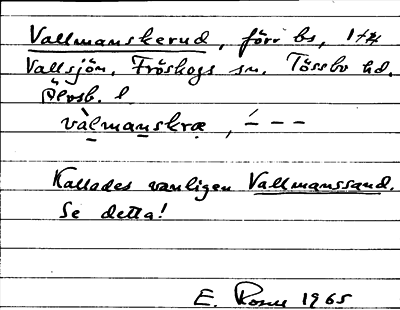 Vallmanskerud, förr bs, 1 tr
Vallsjön. Fröskogs sn. Tössbo hd.
Älvsb. l
vàlmanskræ, ´– – –
Kallades vanligen Vallmanssand.
Se detta!
E. Rosm 1965